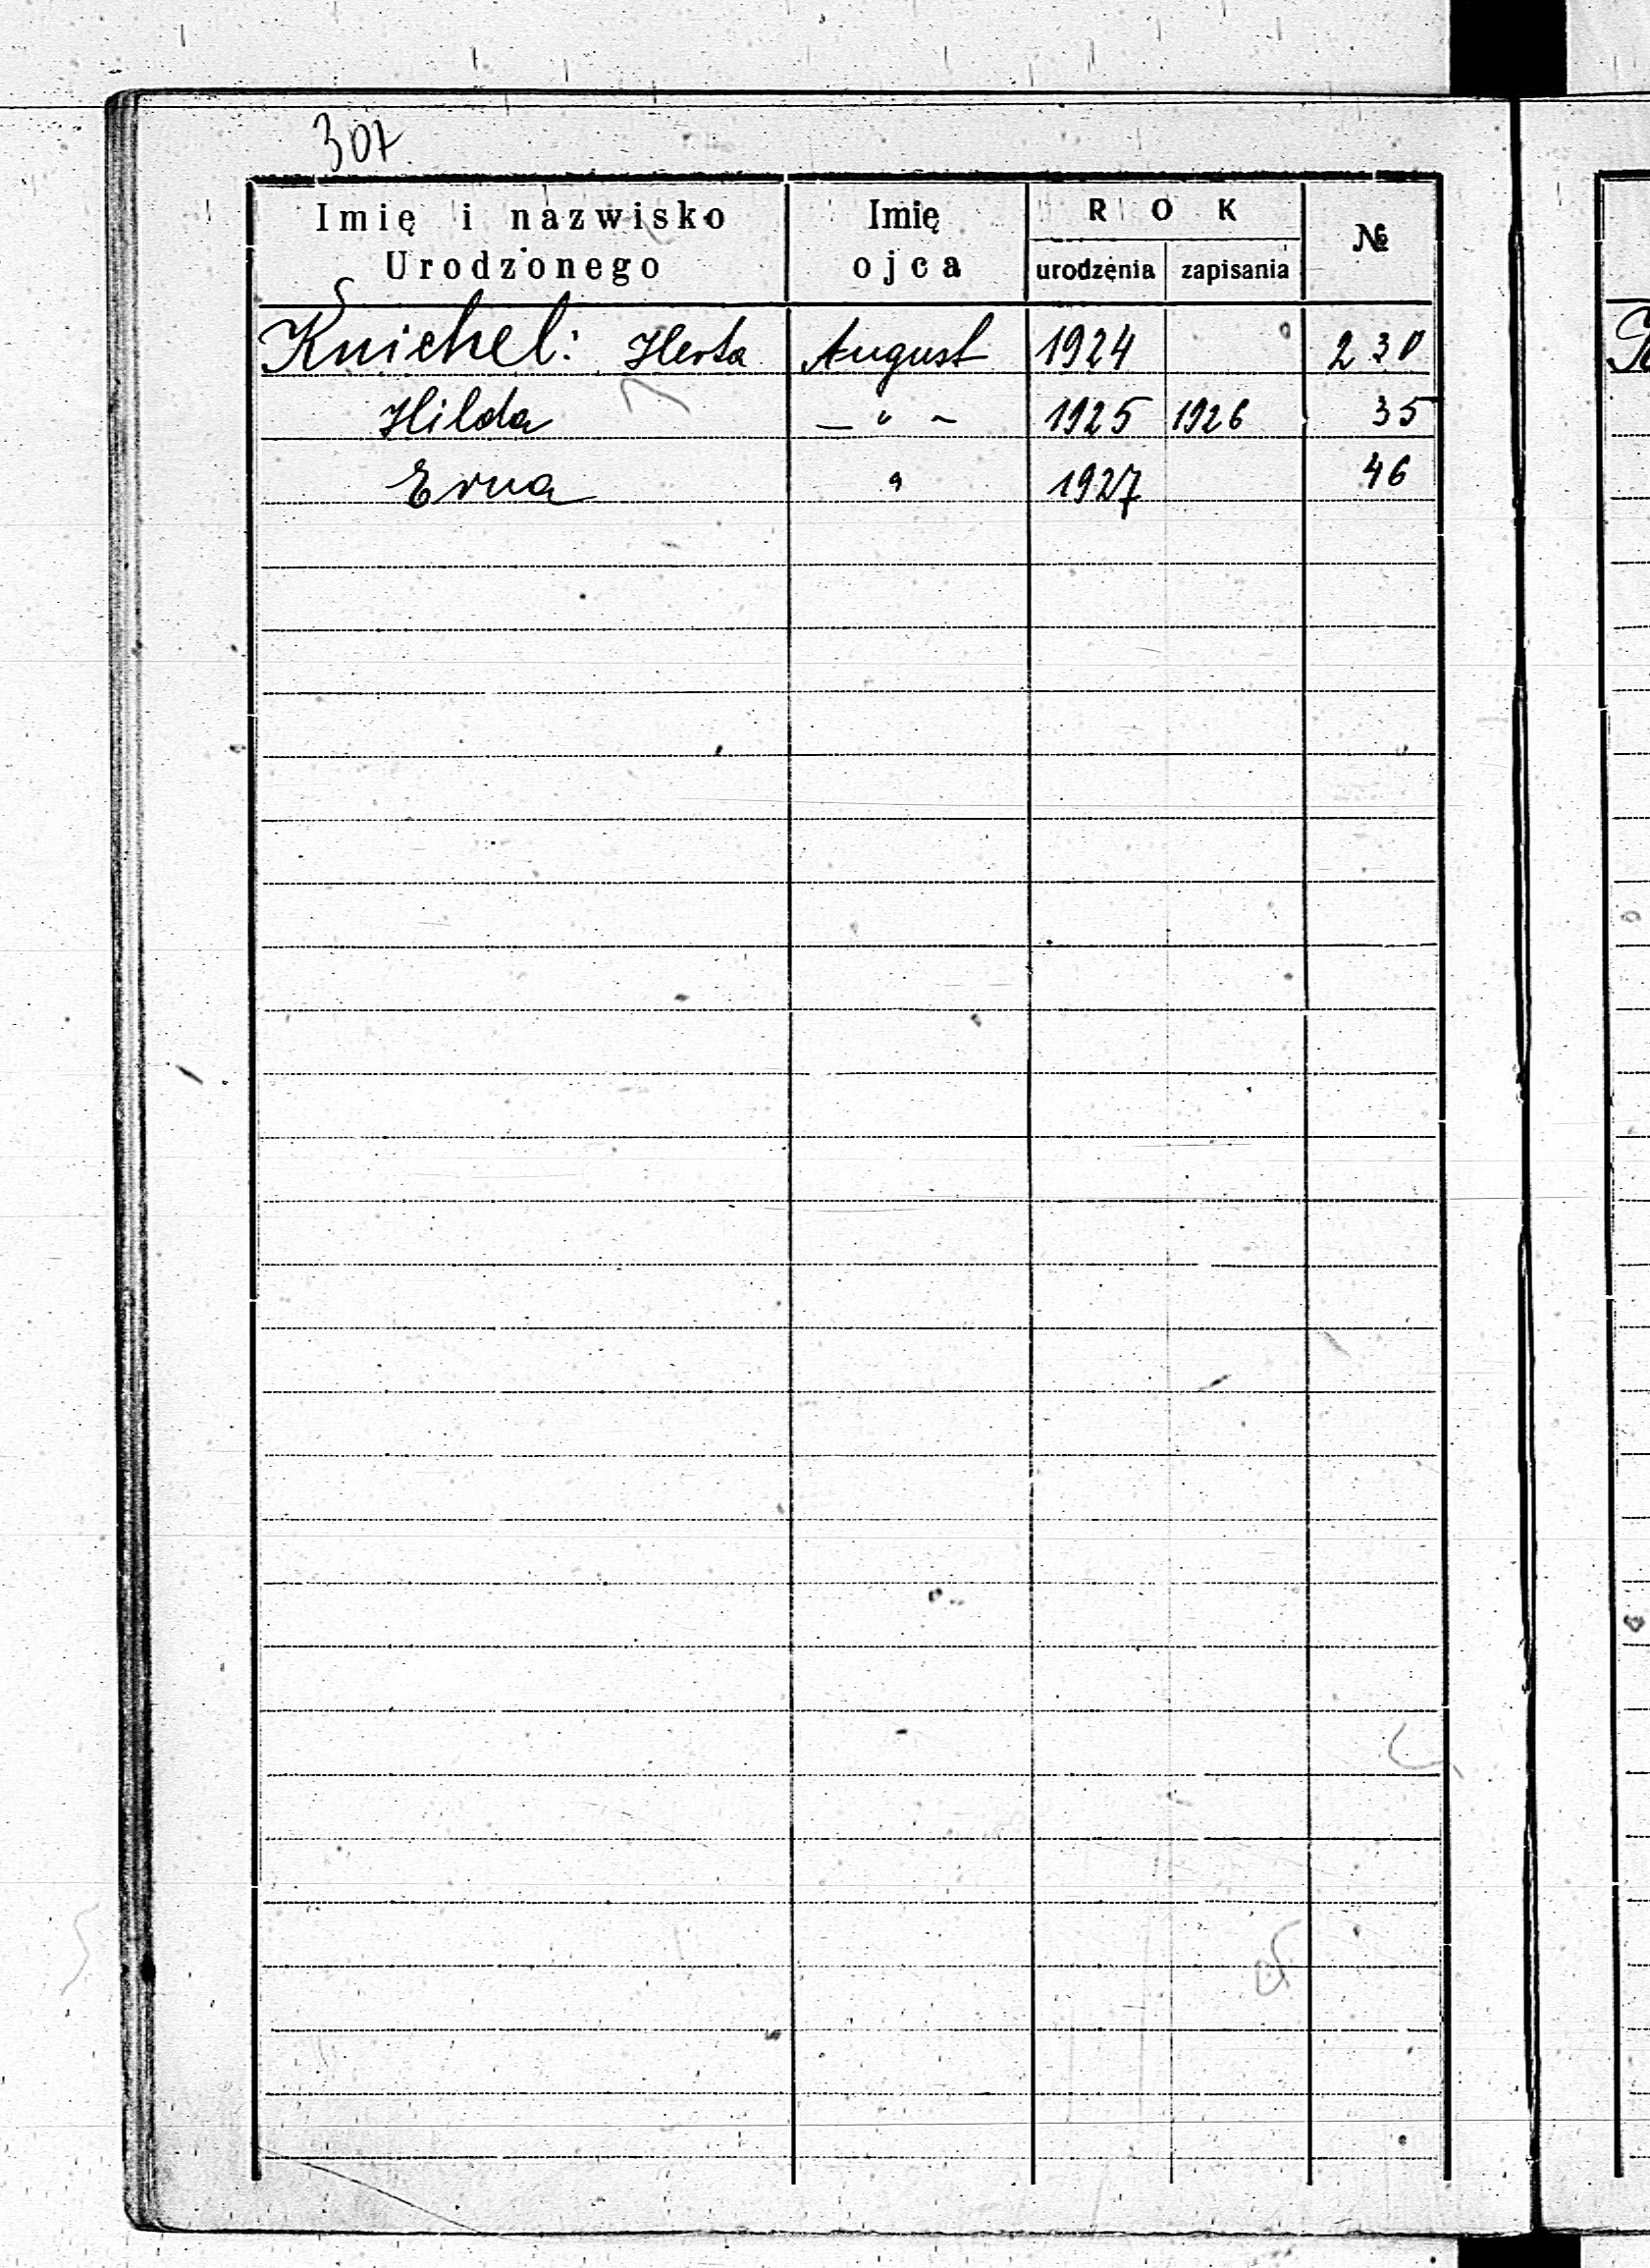 307
Imię i nazwisko Urodzonego Imię ojca ROK urodzenia zapisania №
Knichel: Herta August 1924 230
Hilda — " – 1925 1926 35
Erna " 1927 46